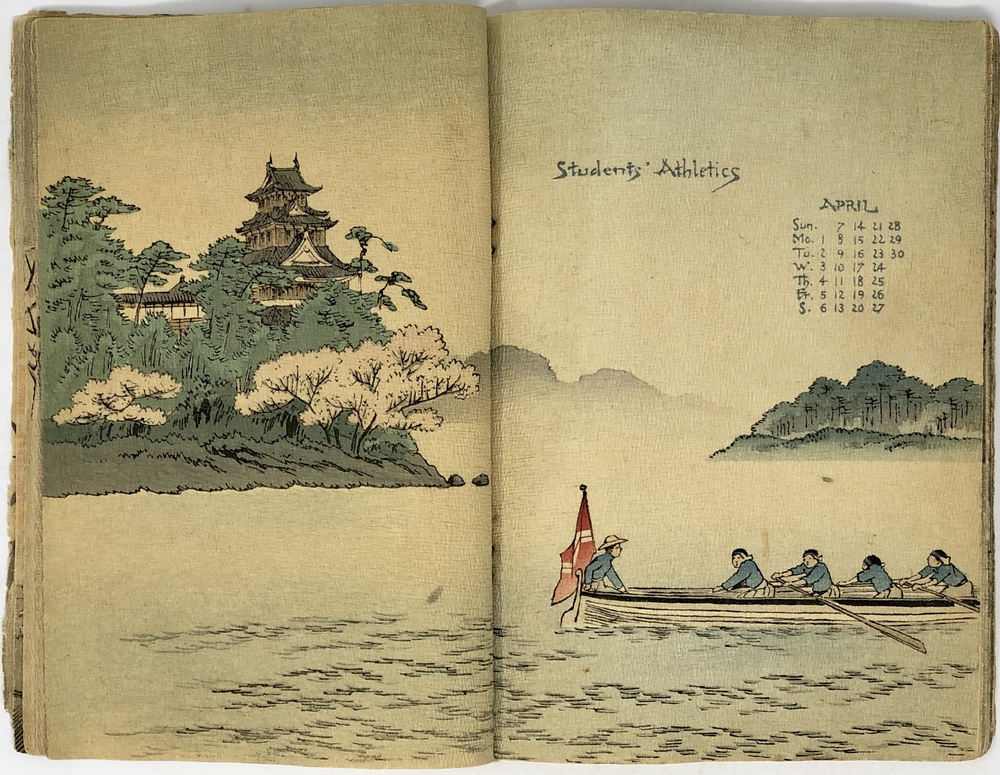 Students' Athletics
APRIL
Sun. 7 14 21 28
Mo. 1 8 15 22 29
Tu. 2 9 16 23 30
W. 3 10 17 24
Th. 4 11 18 25
Fr. 5 12 19 26
S. 6 13 20 27